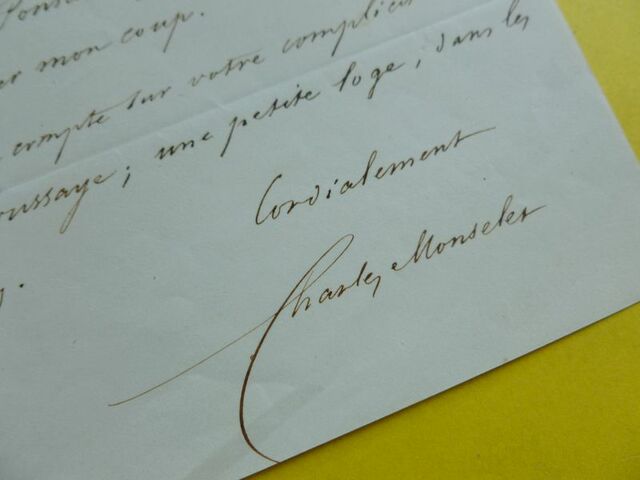 mon coup.
compte sur votre complicit
oussaye; une petite loge, dans les
Cordialement
Charles Monselet